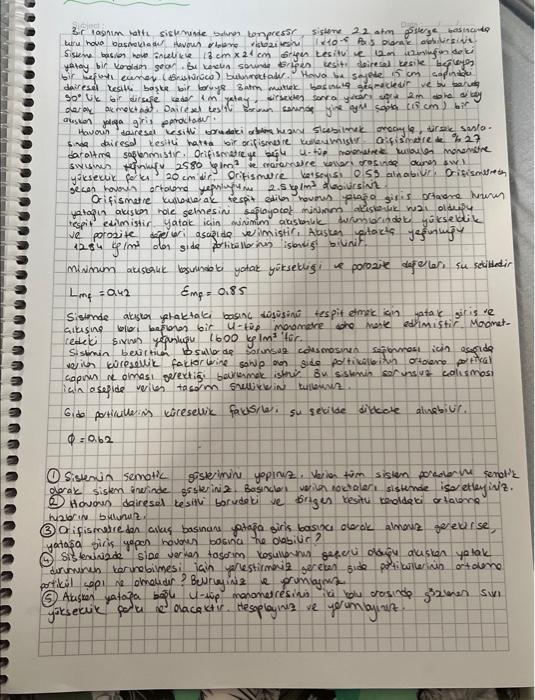 Subject: Date
Bir taşınım hattı sisteminde bulunan kompresör sisteme 22 atm gösterge basıncında
kuru hava basmaktadır. Havanın ortalama viskozitesini 1x10⁻⁵ Pa.s olarak alabilirsiniz.
Sisteme basılan hava öncelikle 18 cm x 21 cm dörtgen kesitli ve 12m uzunluğundaki
yatay bir kanaldan geçer. Bu kanalın sonunda dörtgen kesiti dairesel kesite bağlayan
bir bağlantı elemanı (dönüştürücü) bulunmaktadır. Hava bu sayede 15 cm çapındaki
dairesel kesitli başka bir boruya 8 atm mutlak basınçta geçmektedir ve bu boruda
90° lik bir dirseğe kadar 1m yatay, dirsekten sonra yukarı doğru 2m daha dikey
olarak akmaktadır. Dairesel kesitli borunun sonunda yine aynı çapta (15 cm) bir
akışkan yatağa giriş yapmaktadır.
Havanın dairesel kesitli borudaki ortalama hızını ölçebilmek amacıyla, dirsek sonra-
sında dairesel kesitli hatta bir orifismetre kullanılmıştır. Orifismetrede % 27
daraltma sağlanmıştır. Orifismetreye bağlı U-tüp manometrede kullanılan manometre
sıvısının yoğunluğu 2580 kg/m³ ve manometre kolları arasında okunan sıvı
yükseklik farkı 20 cm'dir. Orifismetre katsayısı 0.59 alınabilir. Orifismetreden
geçen havanın ortalama yoğunluğunu 2.5 kg/m³ alabilirsiniz.
Orifismetre kullanılarak tespit edilen havanın yatağa giriş ortalama hızının
yatağın akışkan hale gelmesini sağlayacak minimum akışkanlık hızı olduğu
tespit edilmiştir. Yatak için minimum akışkanlık durumlarındaki yükseklik
ve porozite değerleri aşağıda verilmiştir. Akışkan yatakta yoğunluğu
1284 kg/m³ olan gıda partiküllerinin işlendiği bilinir.
Minimum akışkanlık koşulundaki yatak yüksekliği ve porozite değerleri şu şekildedir
Lmf = 0.42 Emf = 0.85
Sistemde akışkan yataktaki basınç düşüşünü tespit etmek için yatak giriş ve
çıkışına kolları bağlanan bir U-tüp manometre daha monte edilmiştir. Manomet-
redeki sıvının yoğunluğu 1600 kg/m³ tür.
Sistemin belirtilen koşullarda sorunsuz çalışmasının sağlanması için aşağıda
verilen küresellik faktörüne sahip olan gıda partiküllerinin ortalama partikül
çapının ne olması gerektiği bulunmak istenir. Bu sistemin sorunsuz çalışması
için aşağıda verilen tasarım özelliklerini kullanınız.
Gıda partiküllerinin küresellik faktörleri şu şekilde dikkate alınabilir.
Φ = 0.62
① Sistemin şematik gösterimini yapınız. Verilen tüm sistem parçalarını şematik
olarak sistem üzerinde gösteriniz. Basınçları verilen noktaları sistemde işaretleyiniz.
② Havanın dairesel kesitli borudaki ve dörtgen kesitli kanaldaki ortalama
hızlarını bulunuz.
③ Orifismetreden çıkış basıncını yatağa giriş basıncı olarak almanız gerekirse,
yatağa giriş yapan havanın basıncı ne olabilir?
④ Sisteminizde size verilen tasarım koşullarının geçerli olduğu akışkan yatak
durumunun korunabilmesi için yerleştirmeniz gereken gıda partiküllerinin ortalama
partikül çapı ne olmalıdır? Bulunuz ve yorumlayınız.
⑤ Akışkan yatağa bağlı U-tüp manometresinin iki kolu arasında gözlenen sıvı
yükseklik farkı ne olacaktır. Hesaplayınız ve yorumlayınız.